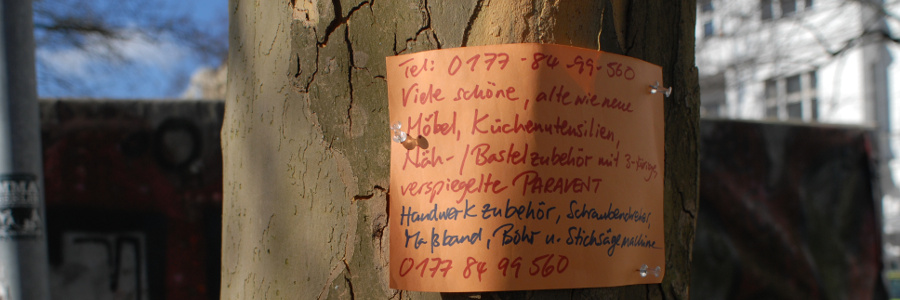 Tel: 0177-84-99-560
Viele schöne, alte wie neue
Möbel, Küchenutensilien,
Näh-/Bastelzubehör mit 3-türige
verspiegelte PARAVENT
Handwerkzubehör, Schraubendreher,
Maßband, Bohr u. Stichsägemaschine
0177 84 99 560